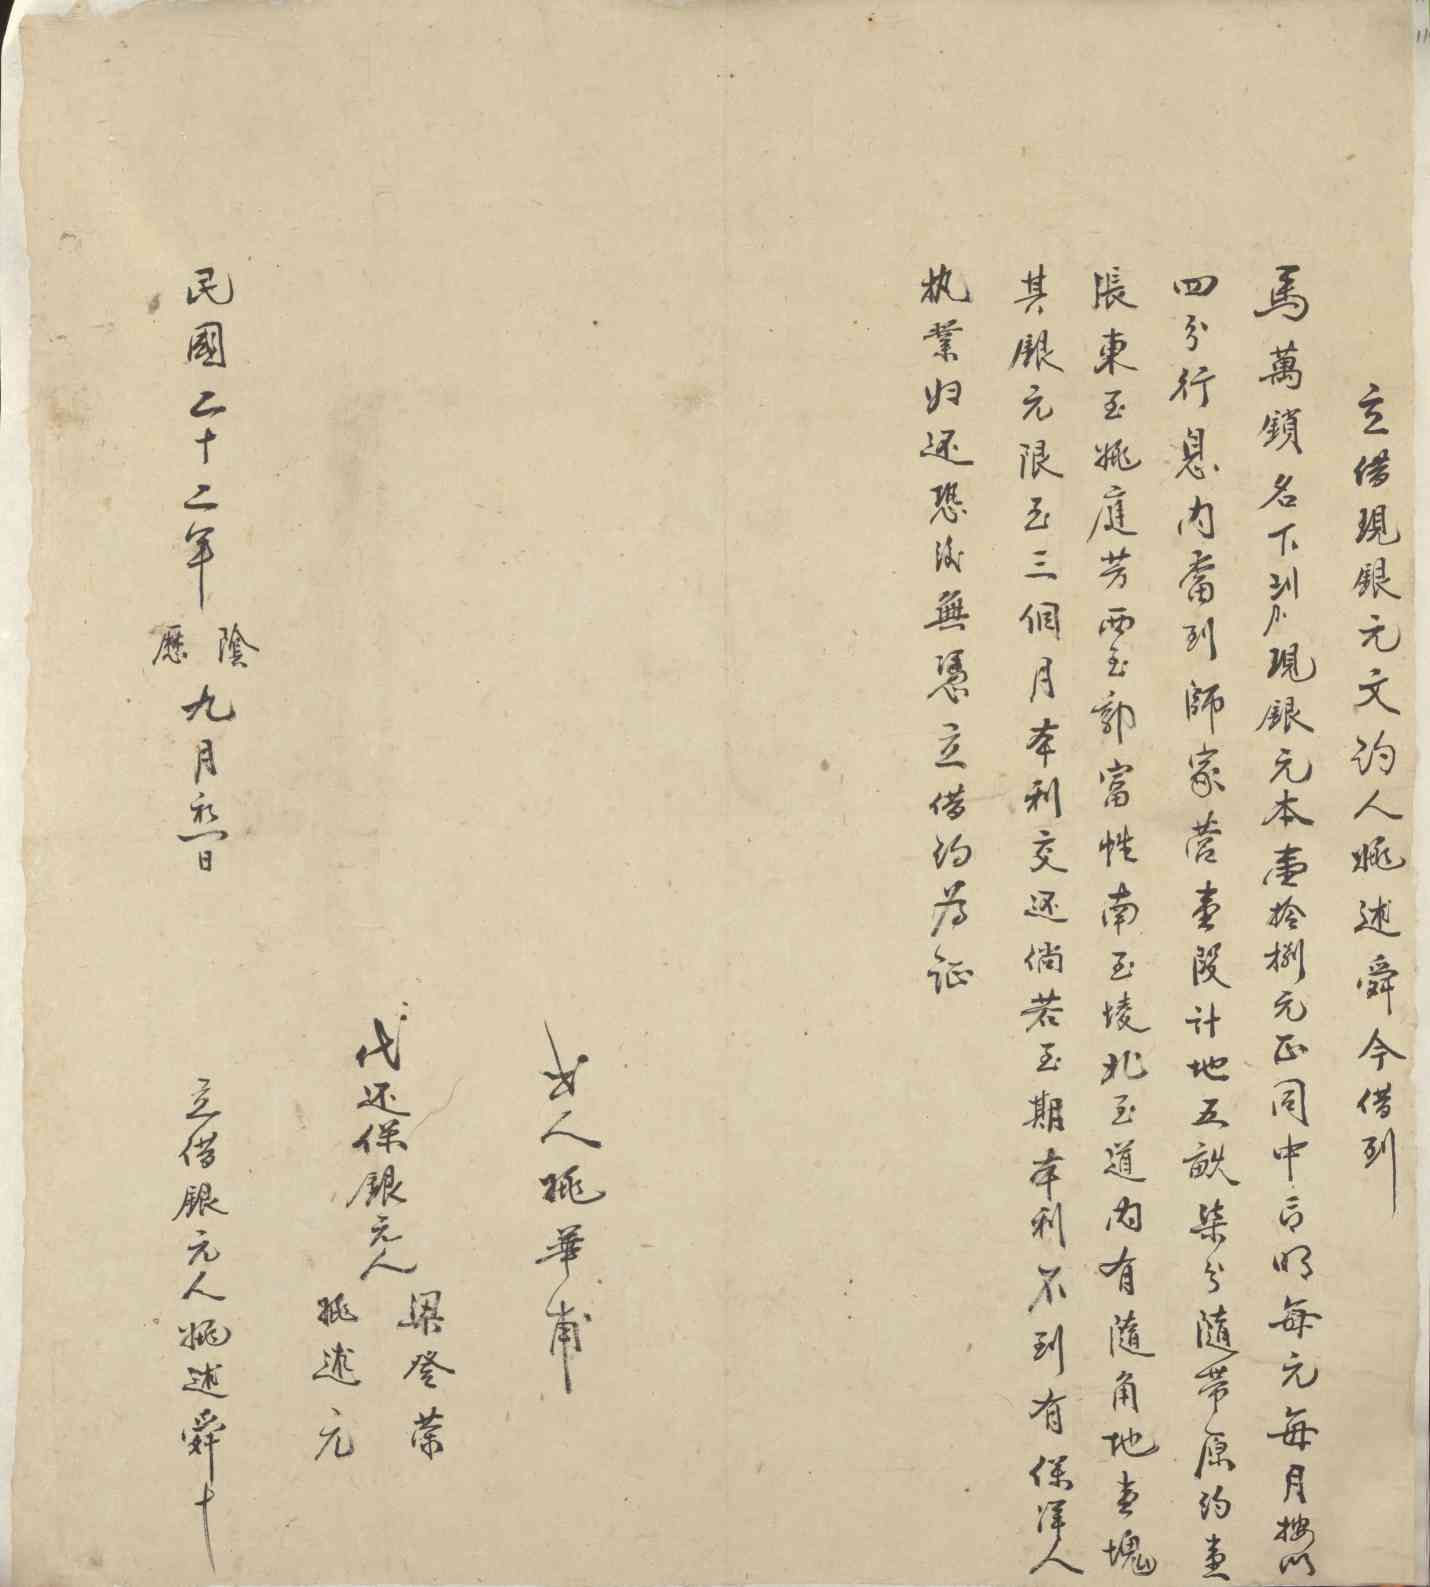 立借現銀元文約人姚述舜今借到
馬萬鎖名下到現銀元本壹拾捌元正同中言明每元每月按以
四分行息內當到師家营壹段計地五畝柒分隨帶原约壹
張東至姚庭芳西至郭富性南至堎北至道內有隨角地壹塊
其銀元限至三個月本利交还倘若至期本利不到有保洋人
执業归还恐後無憑立借约為証
中人姚華甫
代还保銀元人
梁登荣
姚述元
民國二十二年陰歷九月初一日
立借銀元人姚述舜十